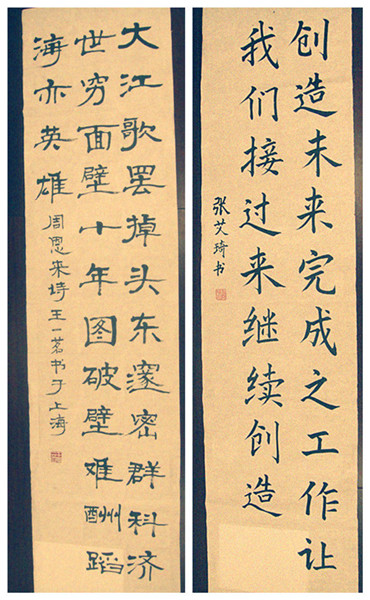 大江歌罢掉头东邃密群科济
世穷面壁十年图破壁难酬蹈
海亦英雄
周恩来诗王一茗书于上海
创造未来完成之工作让
我们接过来继续创造
张艾琦书